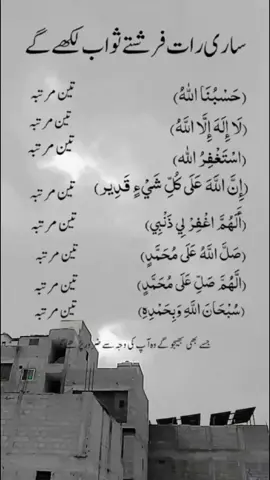 ساری رات فرشتے ثواب لکھے گے
(حَسْبُنَا اللهُ) تین مرتبہ
(لَا إِلَهَ إِلَّا اللَّهُ) تین مرتبہ
(اسْتَغْفِرُ الله) تین مرتبہ
(إِنَّ اللَّهَ عَلَى كُلِّ شَيْءٍ قَدِير) تین مرتبہ
(اَللَّهُمَّ اغْفِرْ لِي ذَنْبِي) تین مرتبہ
(صَلَّ اللَّهُ عَلَى مُحَمَّدٍ) تین مرتبہ
(اللَّهُمَّ صَلِّ عَلَى مُحَمَّدٍ) تین مرتبہ
(سُبْحَانَ اللَّهِ وَبِحَمْدِهِ) تین مرتبہ
جسے بھی بھیجو گے وہ آپ کی وجہ سے